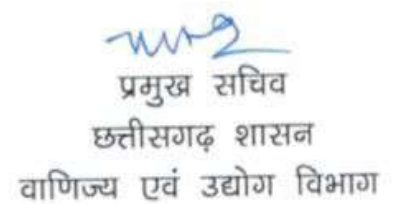 प्रमुख सचिव
छत्तीसगढ़ शासन
वाणिज्य एवं उद्योग विभाग